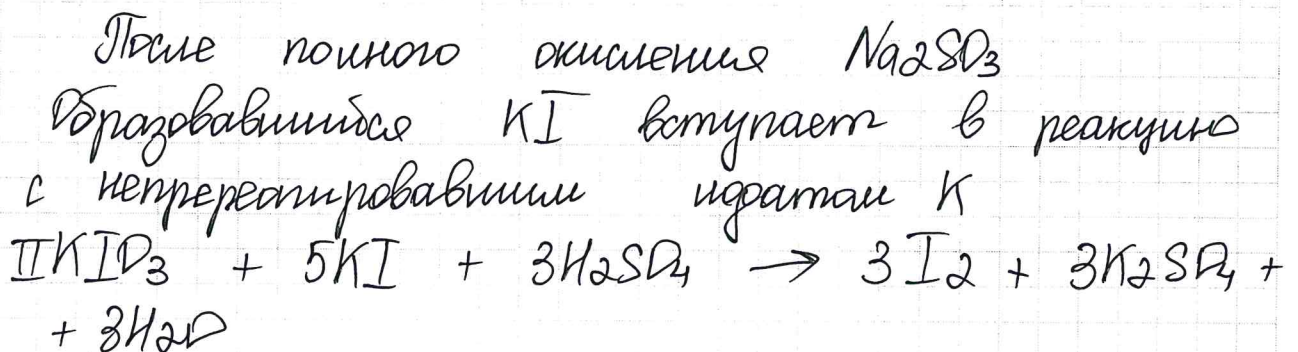 После полного окисления Na2SO3
Образовавшийся KI вступает в реакцию
с непререагировавшим иодатом K
II KIO3 + 5KI + 3H2SO4 → 3I2 + 3K2SO4 +
+ 3H2O